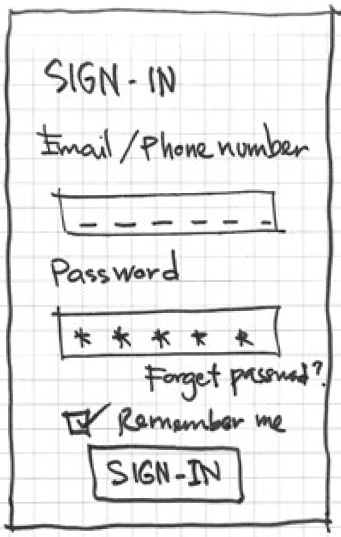 SIGN-IN
Email/Phone number
_ _ _ _ _ _
Password
* * * * *
Forget password?
Remember me
SIGN-IN